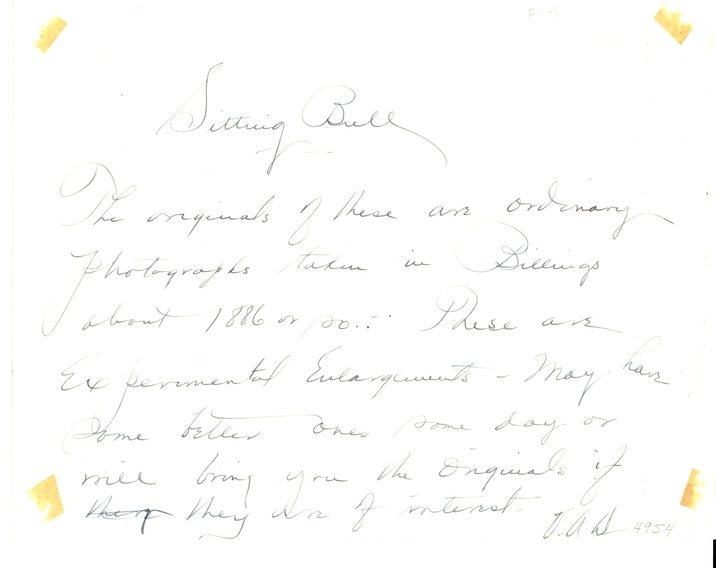 Sitting Bull
The originals of these are ordinary
photographs taken in Billings
about 1886 or so... These are
Experimental Enlargements - May have
some better ones some day or
will bring you the Originals if
they are of interest.
4954